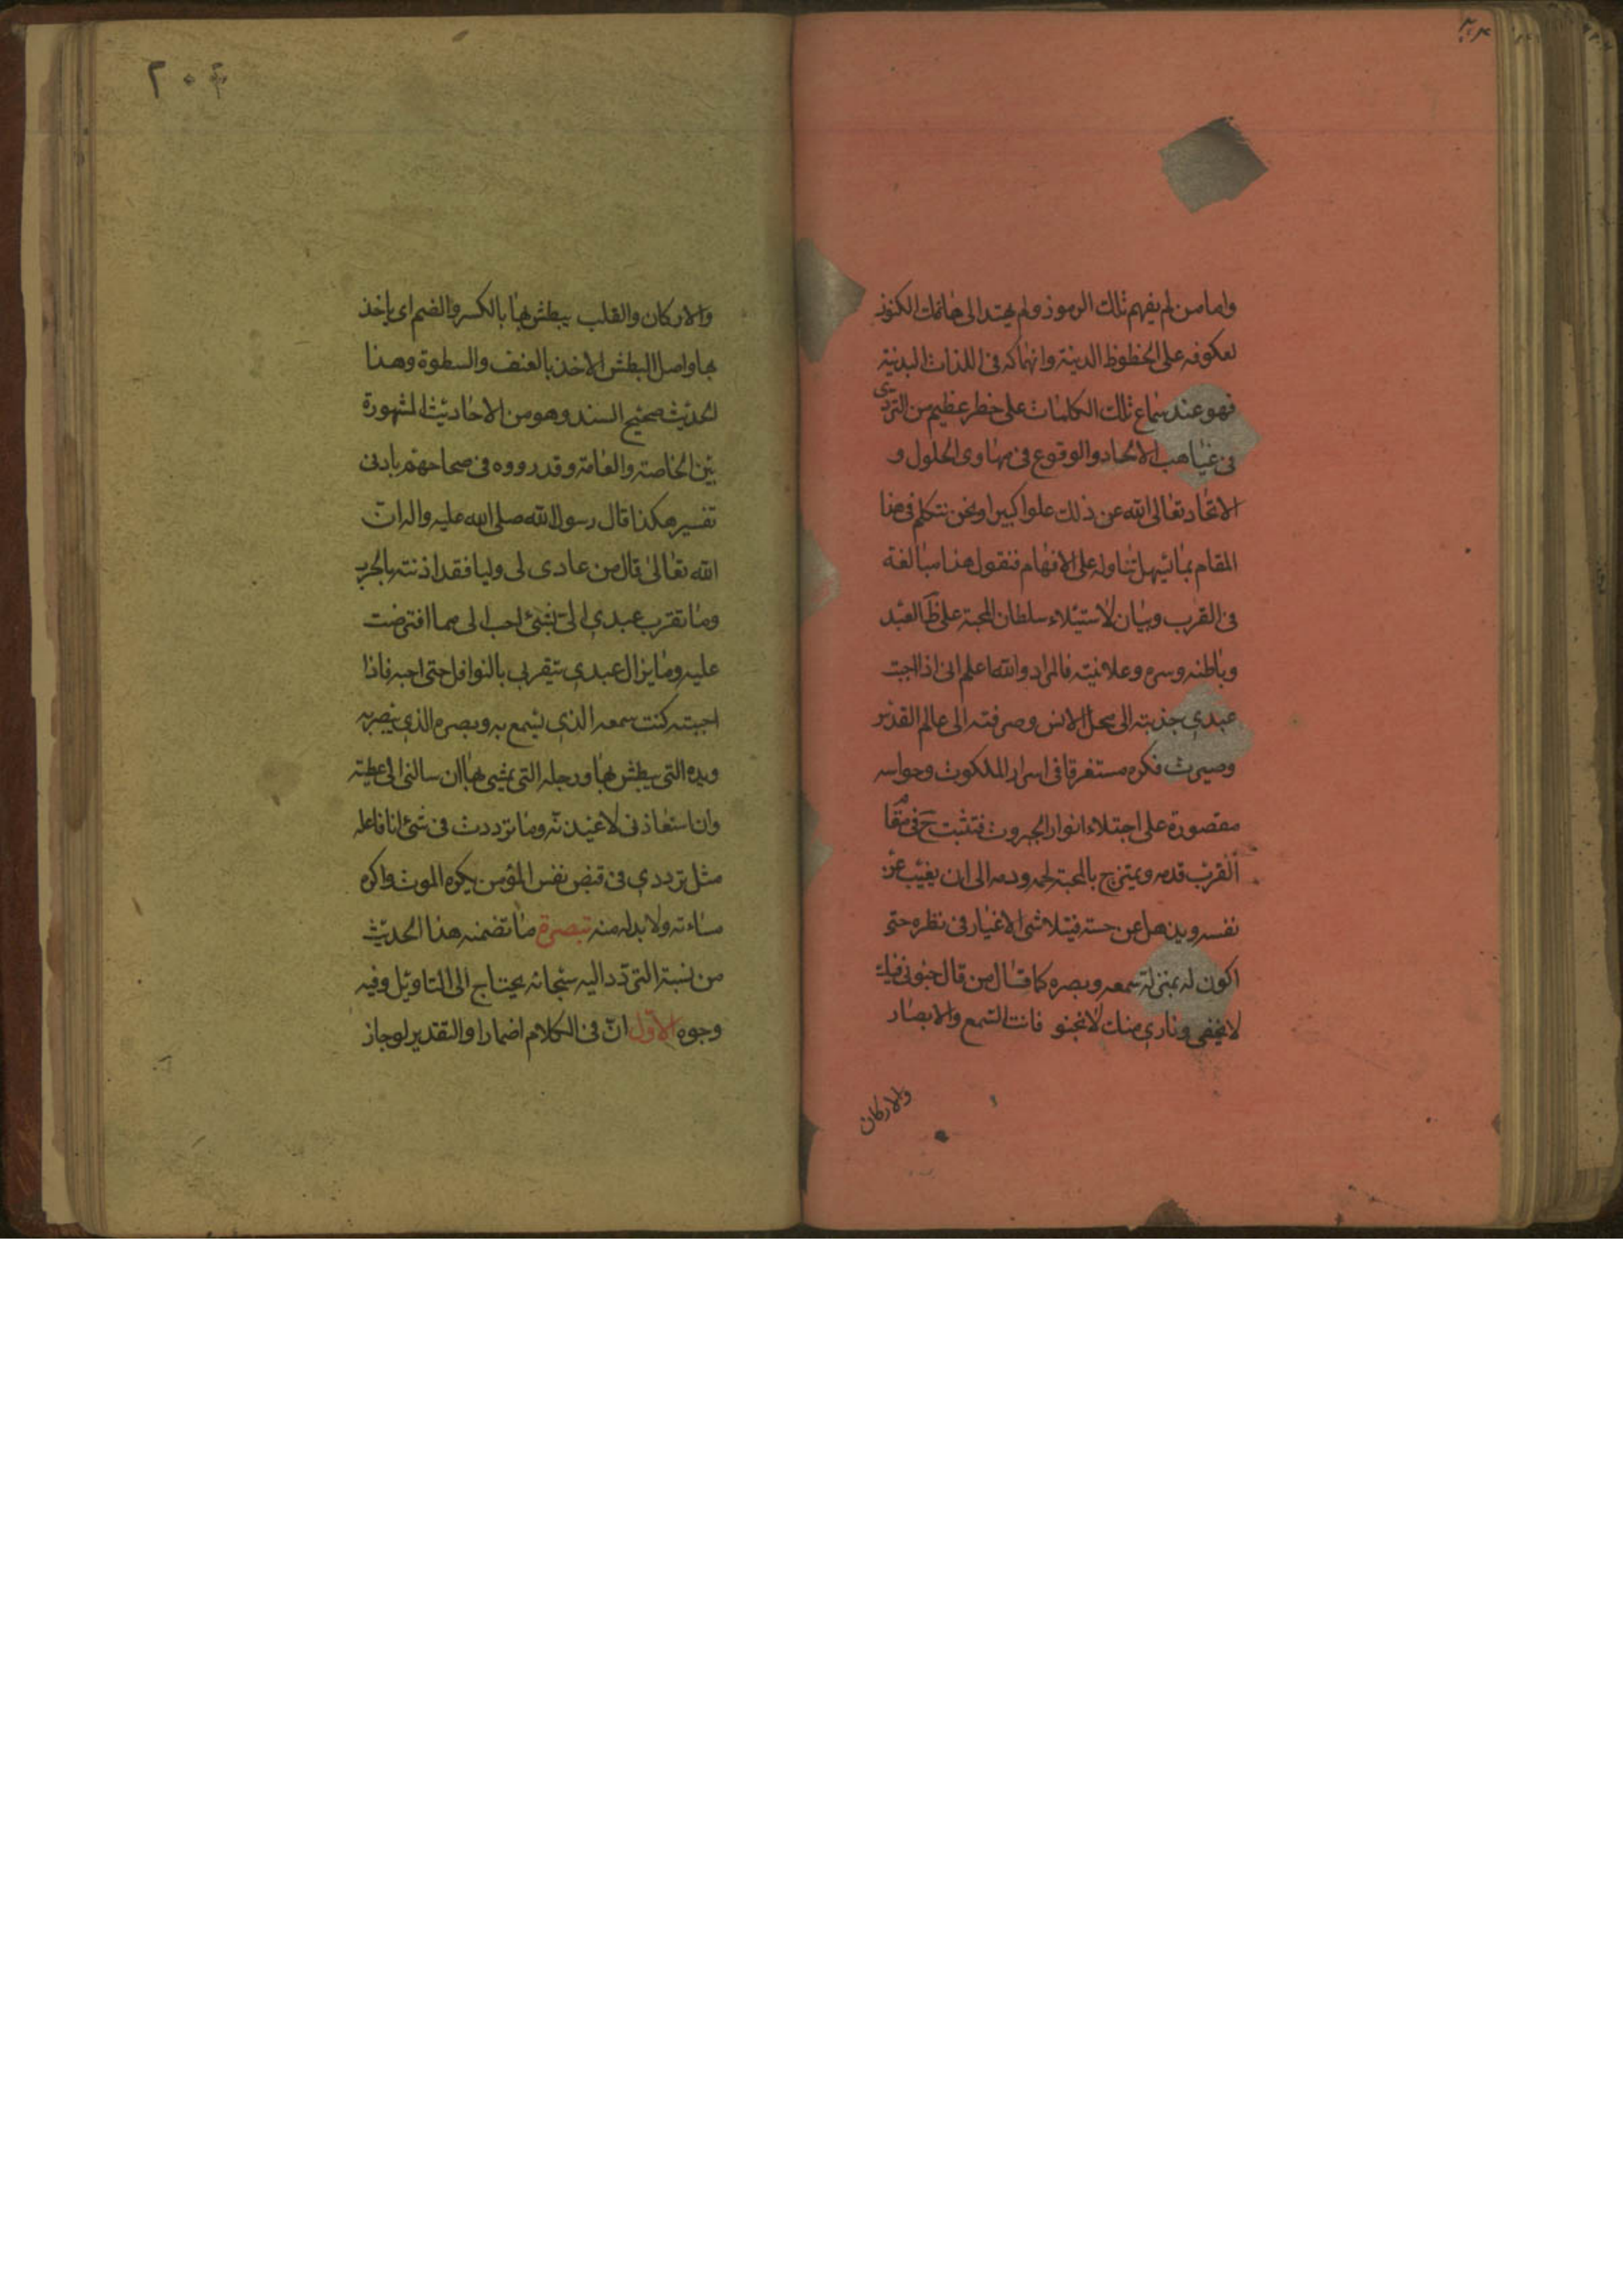 واما من لم يفهم تلك الرموز ولم يهتد الى هاتيك الكنوز
لعكوفه على الحظوظ الدنية وانهماكه فى اللذات البدنية
فهو عند سماع تلك الكلمات على خطر عظيم من التردى
فى غياهب الالحاد والوقوع فى مهاوى الحلول و
الاتحاد تعالى الله عن ذلك علوا كبيرا ونحن نتكلم فى هذا
المقام بما يسهل تناوله على الافهام فنقول هذا مبالغة
فى القرب وبيان لاستيلاء سلطان المحبة على ظاهر العبد
وباطنه وسره وعلانيته فالمراد والله اعلم انى اذا احببت
عبدى جذبته الى محل الانس وصرفته الى عالم القدس
وصيرت فكره مستغرقا فى اسرار الملكوت وحواسه
مقصورة على اجتلاء انوار الجبروت فتثبت ح فى مقام
القرب قدمه ويمتزج بالمحبة لحمه ودمه الى ان يغيب عن
نفسه ويذهل عن حسه فيتلاشى الاغيار فى نظره حتى
اكون له بمنزلة سمعه وبصره كما قال من قال جنونى فيك
لا يخفى ونارى منك لا تخبو فانت السمع والابصار
والاركان
٢٠٤
والاركان والقلب يبطش بها بالكسر والضم اى ياخذ
بها واصل البطش الاخذ بالعنف والسطوة وهذا
الحديث صحيح السند وهو من الاحاديث المشهورة
بين الخاصة والعامة وقد رووه فى صحاحهم بادنى
تفسير هكذا قال رسول الله صلى الله عليه واله ان
الله تعالى قال من عادى لى وليا فقد اذنته بالحرب
وما تقرب عبدى الى بشئ احب الى مما افترضت
عليه وما يزال عبدى يتقرب بالنوافل حتى احبه فاذا
احببته كنت سمعه الذى يسمع به وبصره الذى يبصر به
ويده التى يبطش بها ورجله التى يمشى بها ان سالنى لاعطيته
وان استعاذنى لاعيذنه وما ترددت فى شئ انا فاعله
مثل ترددى فى قبض نفس المؤمن يكره الموت واكره
مساءته ولا بد له منه تبصرة ما تضمنه هذا الحديث
من نسبة التردد اليه سبحانه يحتاج الى التاويل وفيه
وجوه الاول ان فى الكلام اضمارا والتقدير لو جاز